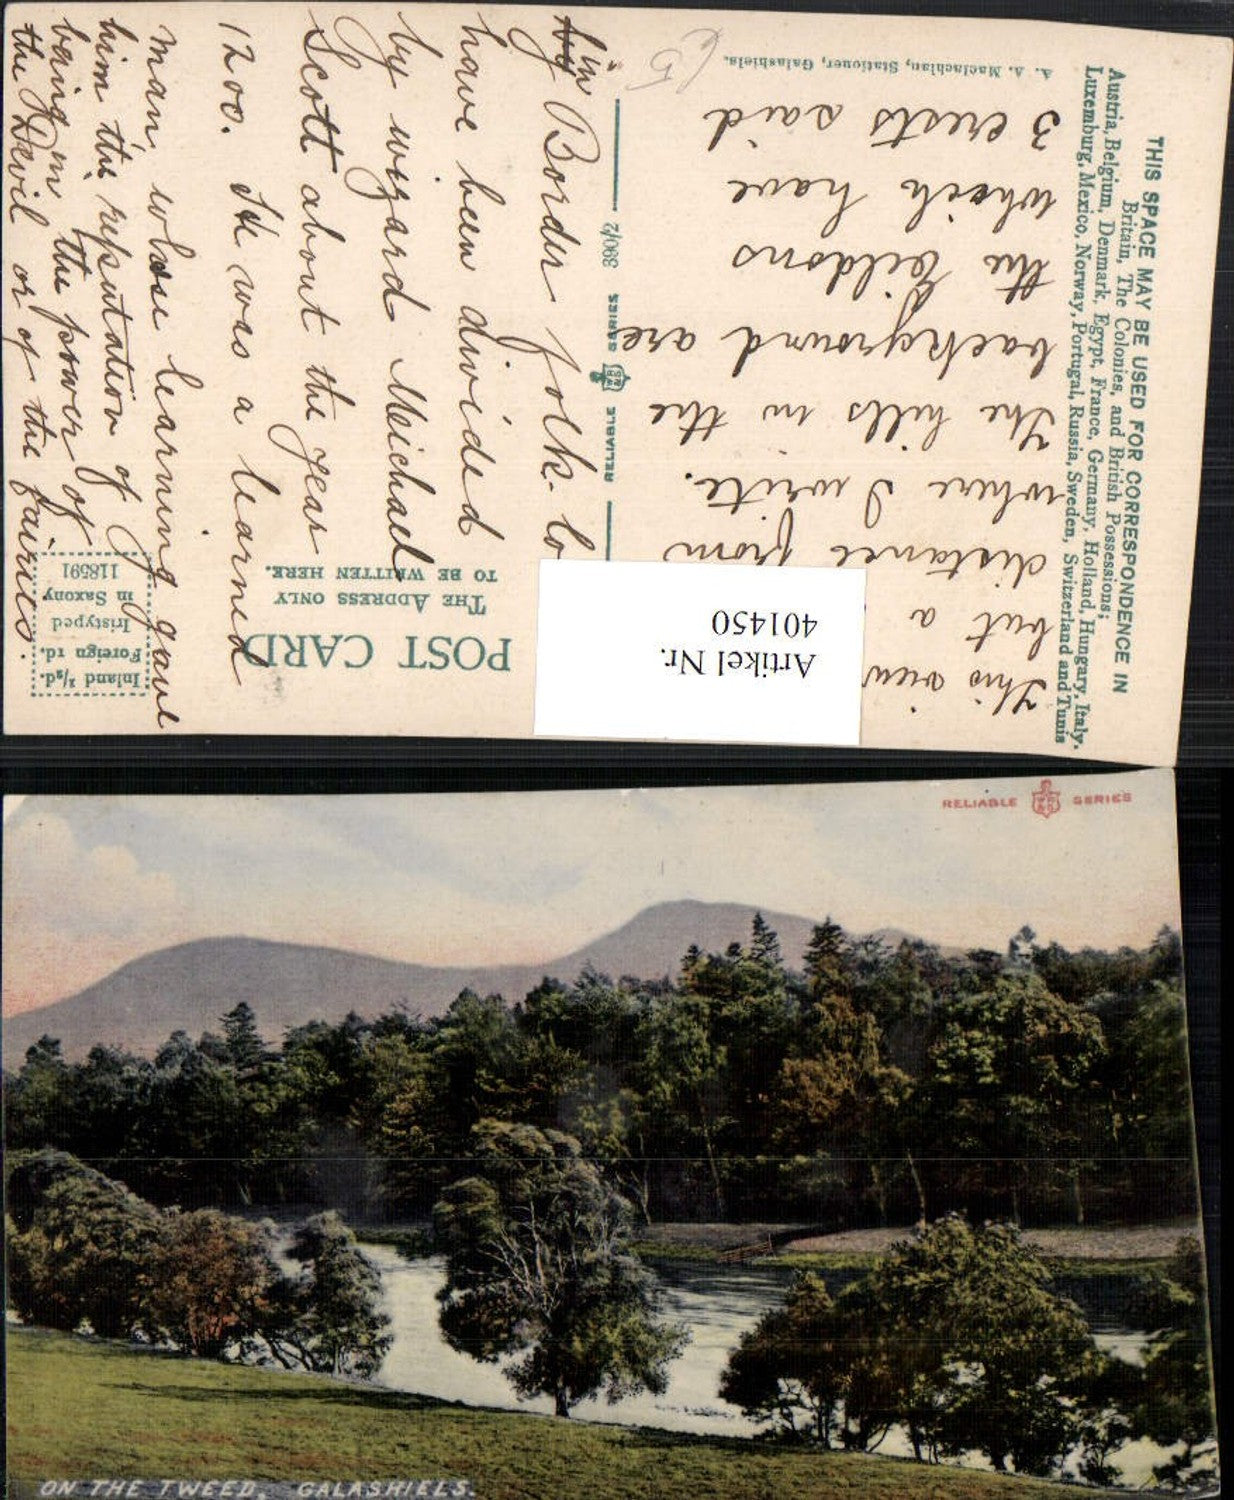 THIS SPACE MAY BE USED FOR CORRESPONDENCE IN
Britain, The Colonies, and British Possessions;
Austria, Belgium, Denmark, Egypt, France, Germany, Holland, Hungary, Italy,
Luxemburg, Mexico, Norway, Portugal, Russia, Sweden, Switzerland and Tunis
A. A. Maclachlan, Stationer, Galashiels.
This view
but a
distance from
where I write.
The hills in the
background are
the Eildons
which have
3 crests said
Artikel Nr.
401450
RELIABLE SERIES 390/2
POST CARD
THE ADDRESS ONLY
TO BE WRITTEN HERE.
Inland ½d.
Foreign 1d.
Iristyped
in Saxony
118591
in
by Border folk - to
have been divided
by wizard Meichael
Scott about the year
1200. He was a learned
man whose learning gave
him the reputation of
being in the power of
the Devil or of the fairies.
65
RELIABLE SERIES
ON THE TWEED, GALASHIELS.